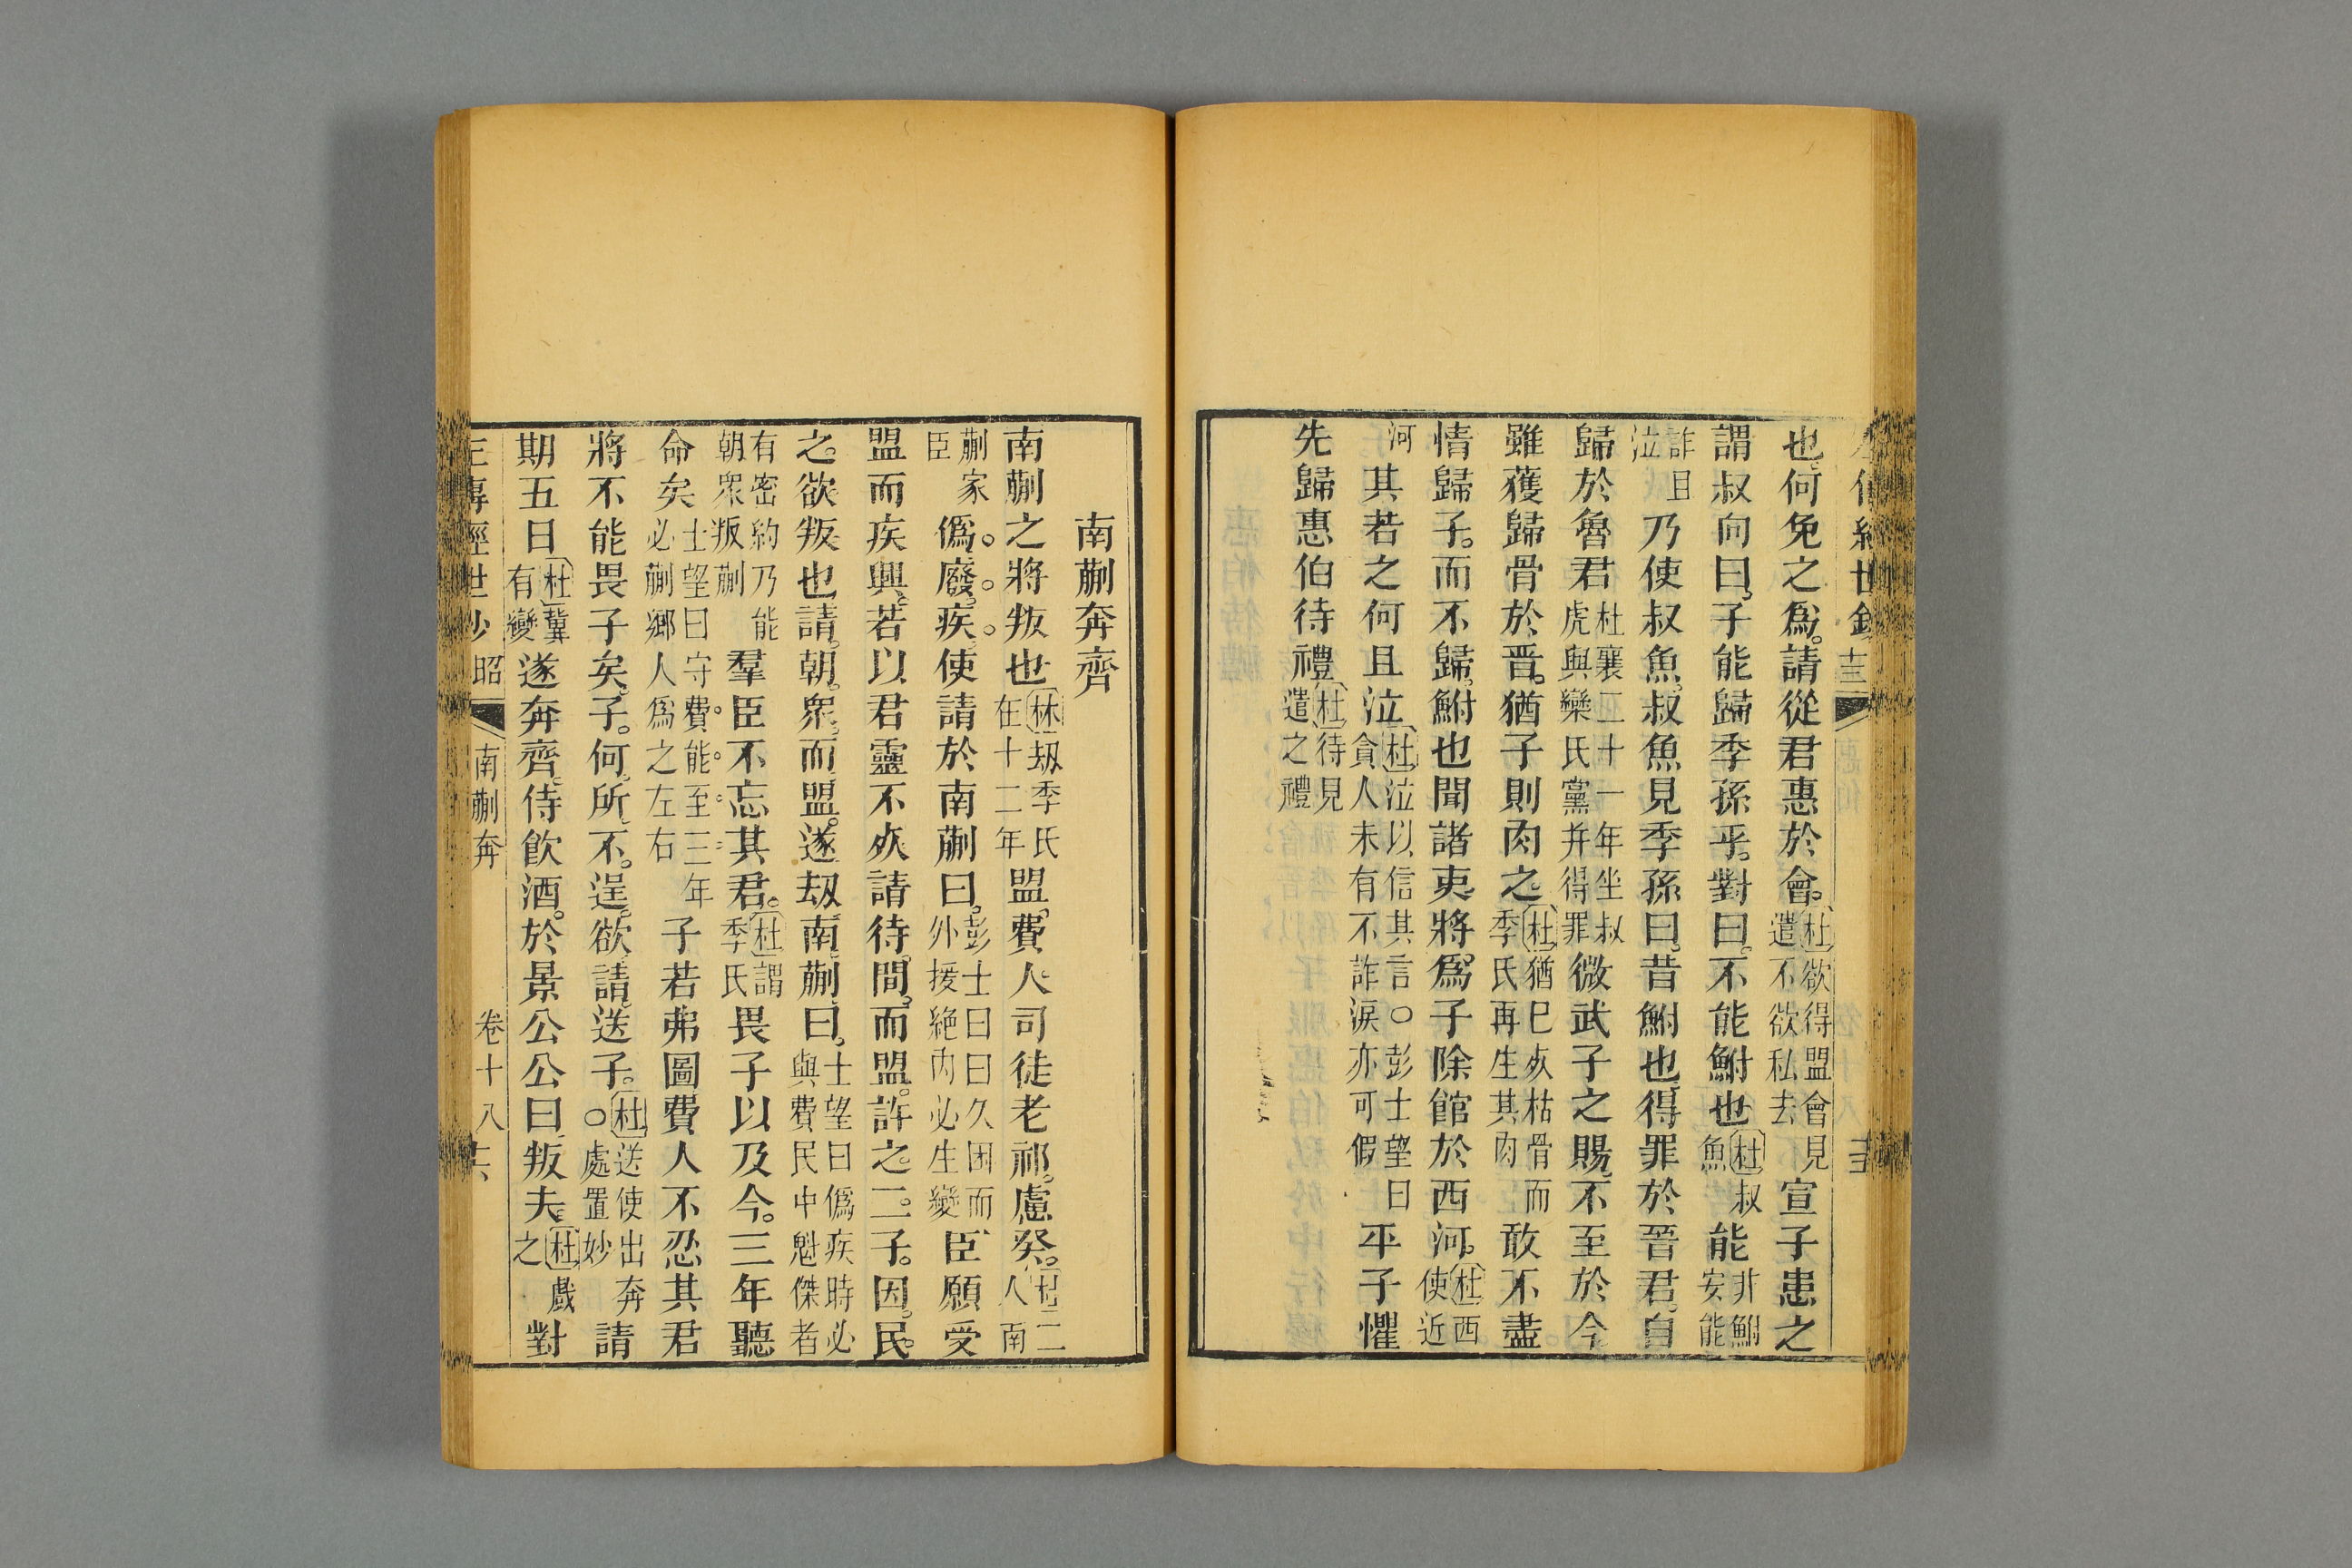 左傳經世鈔
也何免之爲請從君惠於會杜欲得盟會見遣不欲私去宣子患之
謂叔向曰子能歸季孫乎對曰不能鮒也杜叔魚能非鮒安能
詐且泣乃使叔魚叔魚見季孫曰昔鮒也得罪於晉君自
歸於魯君杜襄二十一年坐叔虎與欒氏黨并得罪微武子之賜不至於今
雖獲歸骨於晉猶子則肉之杜猶巳死枯骨而季氏再生其肉敢不盡
情歸子而不歸鮒也聞諸吏將爲子除館於西河杜西使近
河其若之何且泣杜泣以信其言○彭士望曰貪人未有不詐淚亦可假平子懼
先歸惠伯待禮杜待見遣之禮
南蒯奔齊
南蒯之將叛也林刼季氏在十二年盟費人司徒老祁慮癸杜二人南
蒯家臣僞廢疾使請於南蒯曰彭士曰曰久困而外援絶內必生變臣願受
盟而疾興若以君靈不死請待間而盟許之二子因民
之欲叛也請朝衆而盟遂刼南蒯曰士望曰僞疾時必與費民中魁傑者
有密約乃能朝眾叛蒯羣臣不忘其君杜謂季氏畏子以及今三年聽
命矣士望曰守費能至三年必蒯鄉人爲之左右子若弗圖費人不忍其君
將不能畏子矣子何所不逞欲請送子杜送使出奔○處置妙請
期五日杜冀有變遂奔齊侍飮酒於景公公曰叛夫杜戲之對
左傳經世鈔 昭 南蒯奔 卷十八